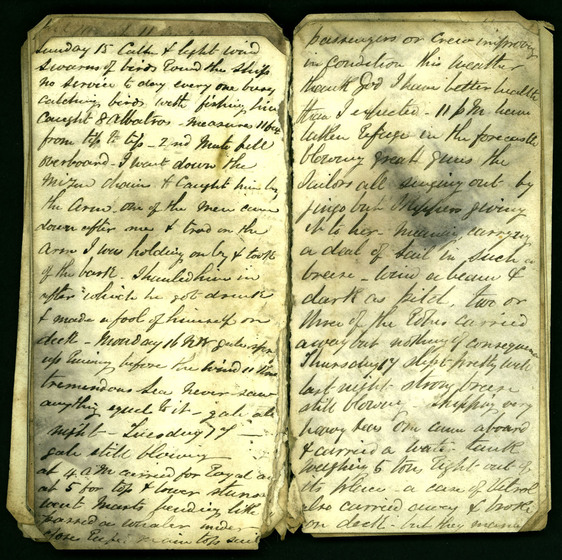 Sunday 15 Calm & light wind
swarms of birds round the ship
no service to day every one busy
catching birds with fishing line
caught 8 Albatros - measures 11 feet
from tip to tip - 2nd Mate fell
overboard - I went down the
Mizen chains & caught him by
the Arm. one of the men came
down after me & trod on the
Arm I was holding on by & took
of the bark. I hauled him in
after which he got drunk
& made a fool of himself on
deck - Monday 16 NW gale sprang
up running before the wind 11 knots
tremendous sea never saw
anything equal to it - gale all
night - Tuesday 17 -
gale still blowing
at 4 AM carried fore Royal away
at 5 fore top & lower stunsail
went Masts bending like
passed a whaler under
close reef main top sail
passengers or crew improving
in condition this weather
thank God I have better health
than I expected - 11 PM have
taken refuge in the forecastle
blowing great guns the
sailors all singing out by
jingo but Skippers giving
it to her - carrying
a deal of sail in such a
breeze - wind a beam &
dark as two or
three of the carried
away but nothing of consequence
Thursday 17 slept pretty well
last night strong breeze
still blowing shipping very
heavy seas one came aboard
& carried a water tank
weighing 6 tons right out of
its place - a case of
also carried away & broke
on deck - but they